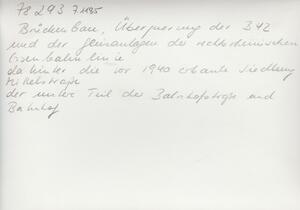 78 293 71185
Brückenbau, Überquerung der B42
und der Gleisanlagen der rechtsrheinischen
Eisenbahnlinie
dahinter die vor 1940 erbaute Siedlung
der untere Teil der Bahnhofstraße und
Bahnhof